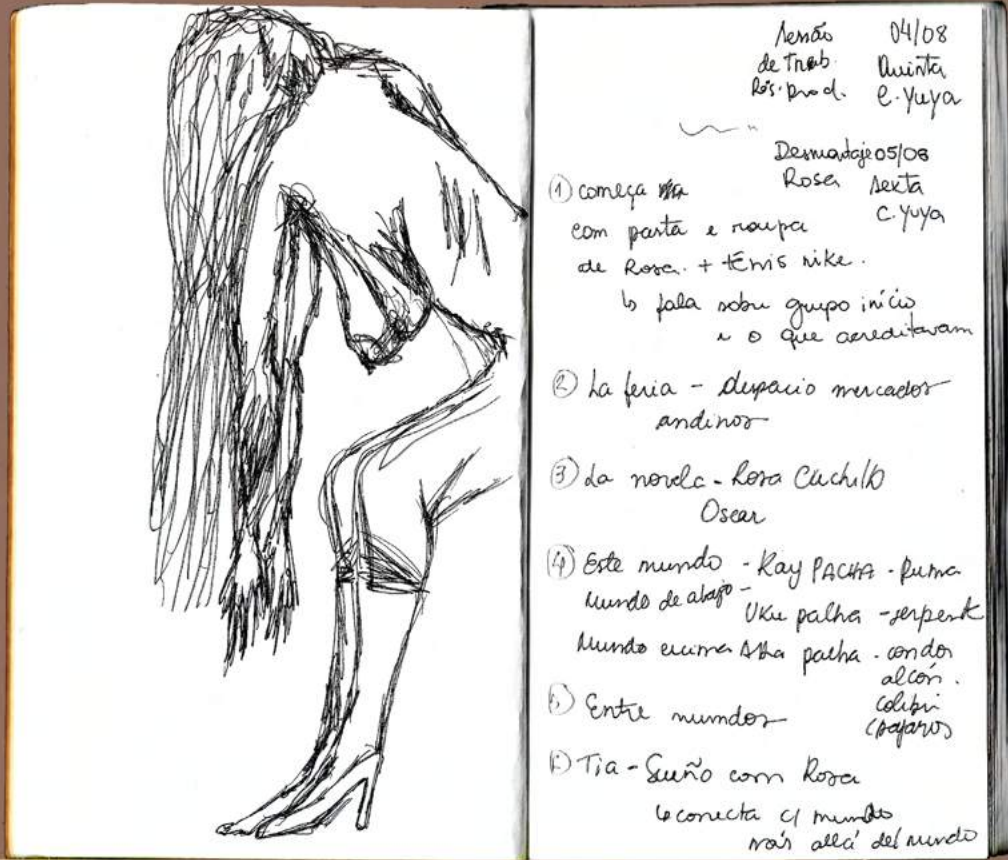 Sessão 04/08
de Trab. Quinta
Pós. prod. C. Yuya
Desmontaje 05/08
Rosa sexta
C. Yuya
① começa
com pasta e roupa
de Rosa. + tênis nike.
↳ fala sobre grupo início
e o que acreditavam
② La feria - despacio mercados
andinos
③ La novela - Rosa Cuchillo
Oscar
④ Este mundo - Kay PACHA - puma
Mundo de abajo -
Uku palha - serpente
Mundo encima palha - condor
alcón.
colibri
(pájaros
Entre mundos
Tia - Sueño com Rosa
↳ conecta c/ mundo
más allá del mundo